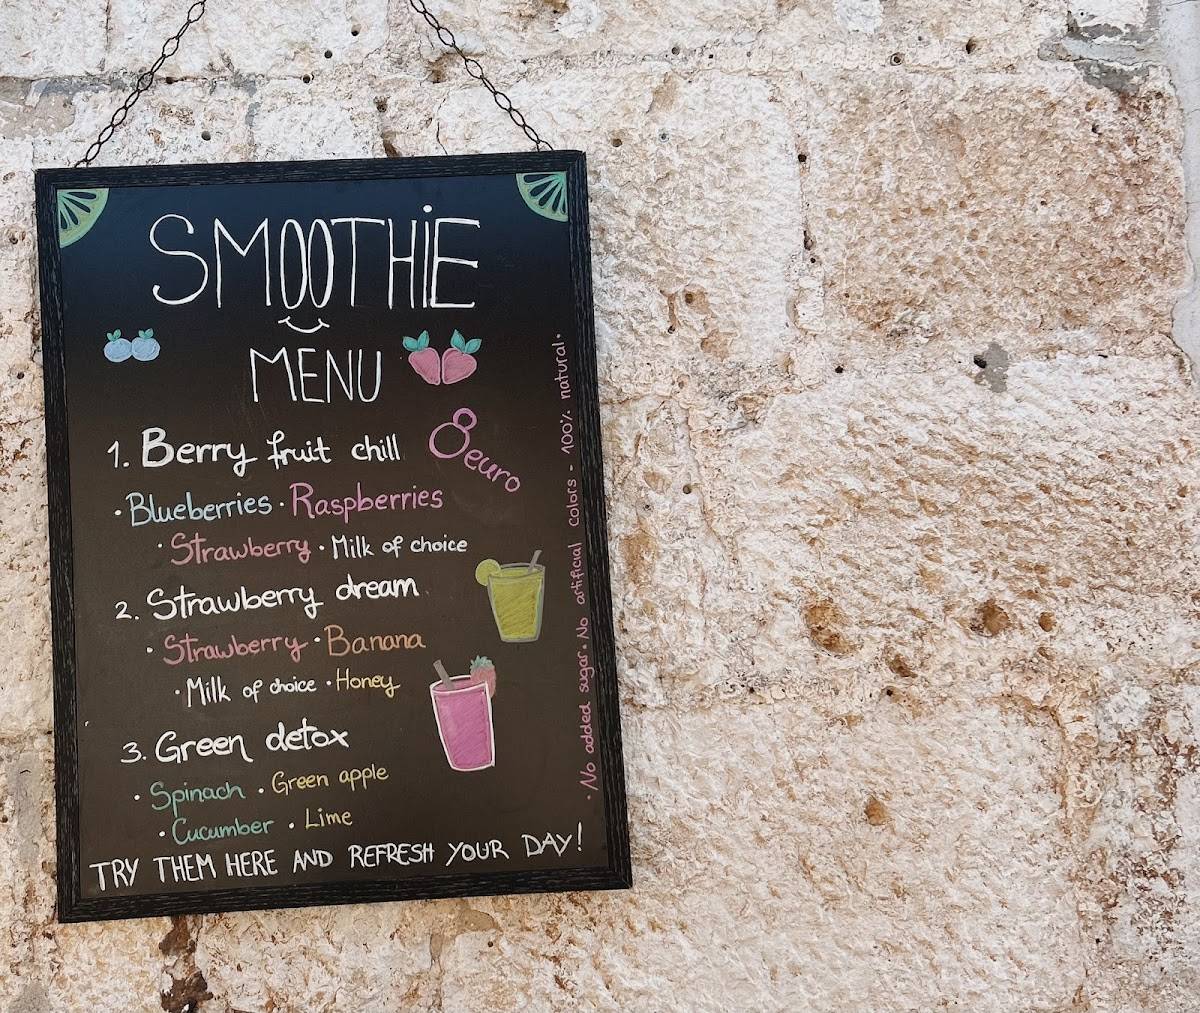 SMOOTHiE
MENU
1. Berry fruit chill
8 euro
• Blueberries • Raspberries
• Strawberry • Milk of choice
2. Strawberry dream
• Strawberry • Banana
• Milk of choice • Honey
3. Green detox
• Spinach • Green apple
• Cucumber • Lime
TRY THEM HERE AND REFRESH YOUR DAY!
• No added sugar • No artificial colors - 100% natural •